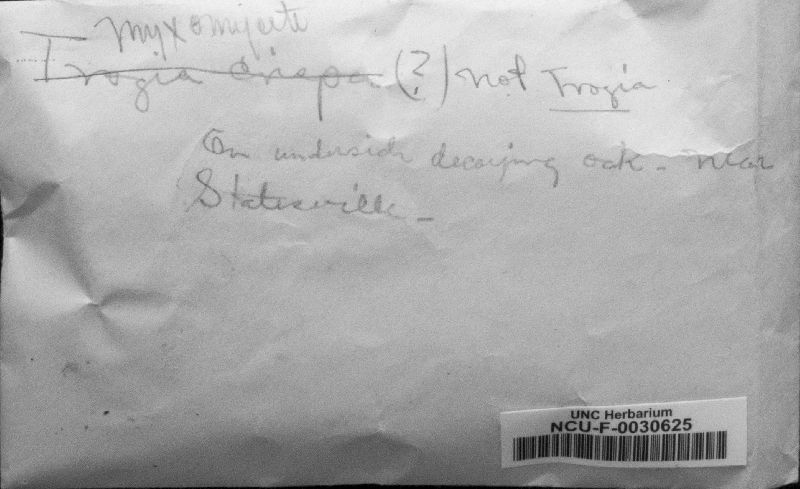 Myxomycete
Trogia crispa (?) not Trogia
On underside decaying oak - near
Statesville -
UNC Herbarium
NCU-F-0030625